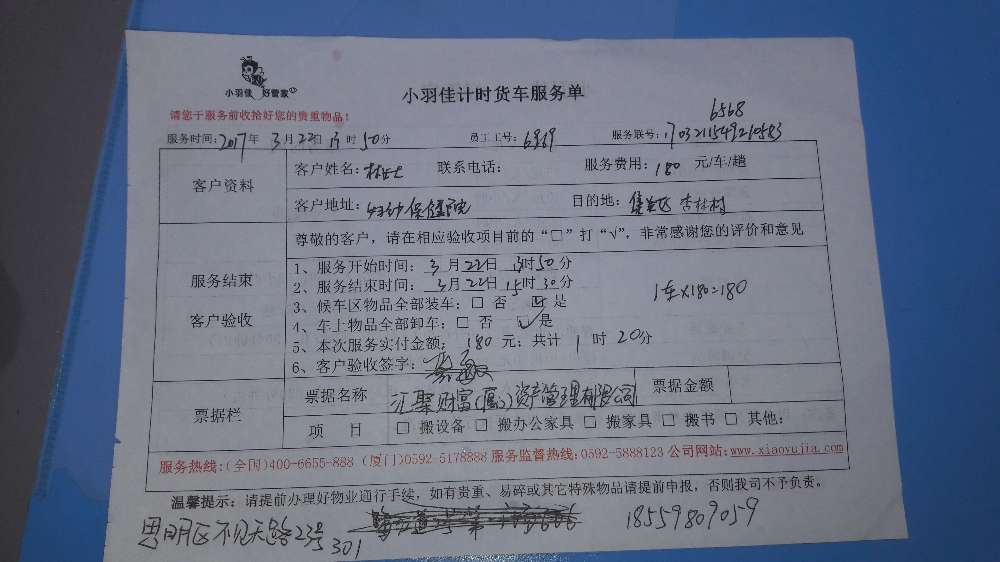 小羽佳 好管家
小羽佳计时货车服务单
请您于服务前收拾好您的贵重物品!
6568
服务时间:2017年 3月22日 13时50分 员工工号:6869 服务联号:1703211549210583
客户资料
客户姓名:林女士 联系电话: 服务费用:180 元/车/趟
客户地址:妇幼保健院 目的地:集美区 杏林村
服务结束
客户验收
尊敬的客户,请在相应验收项目前的“□”打“√”,非常感谢您的评价和意见
1、服务开始时间:3月22日 13时50分
2、服务结束时间:3月22日 15时30分
3、候车区物品全部装车:□ 否 ☑ 是
4、车上物品全部卸车:□ 否 ☑ 是
5、本次服务实付金额:180 元;共计 1 时 20分
6、客户验收签字:
1车×180=180
票据栏
票据名称 汇聚财富(厦门)资产管理有限公司 票据金额
项 目 □ 搬设备 □ 搬办公家具 □ 搬家具 □ 搬书 □ 其他:
服务热线:(全国)400-6655-888 (厦门)0592-5178888 服务监督热线:0592-5888123 公司网站:www.xiaoyujia.com
温馨提示:请提前办理好物业通行手续,如有贵重、易碎或其它特殊物品请提前申报,否则我司不予负责。
思明区不见天路23号301
18559809059